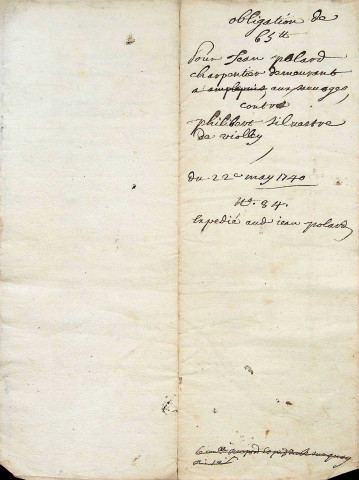 obligation de
65ᵗᵗ
Pour Jean polard
charpentier demeurant
a aux sauvages,
contre
philibert silvestre
de violley
du 22ᵉ may 1740
Nº. 84.
Expedié aud jean polard